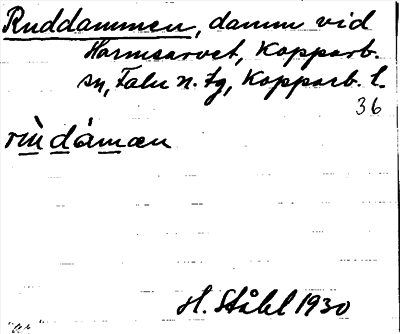 Ruddammen, damm vid
Harmsarvet, Kopparb.
sn, Falu n. tg, Kopparb. l.
36
rùdámæn
H. Ståhl 1930